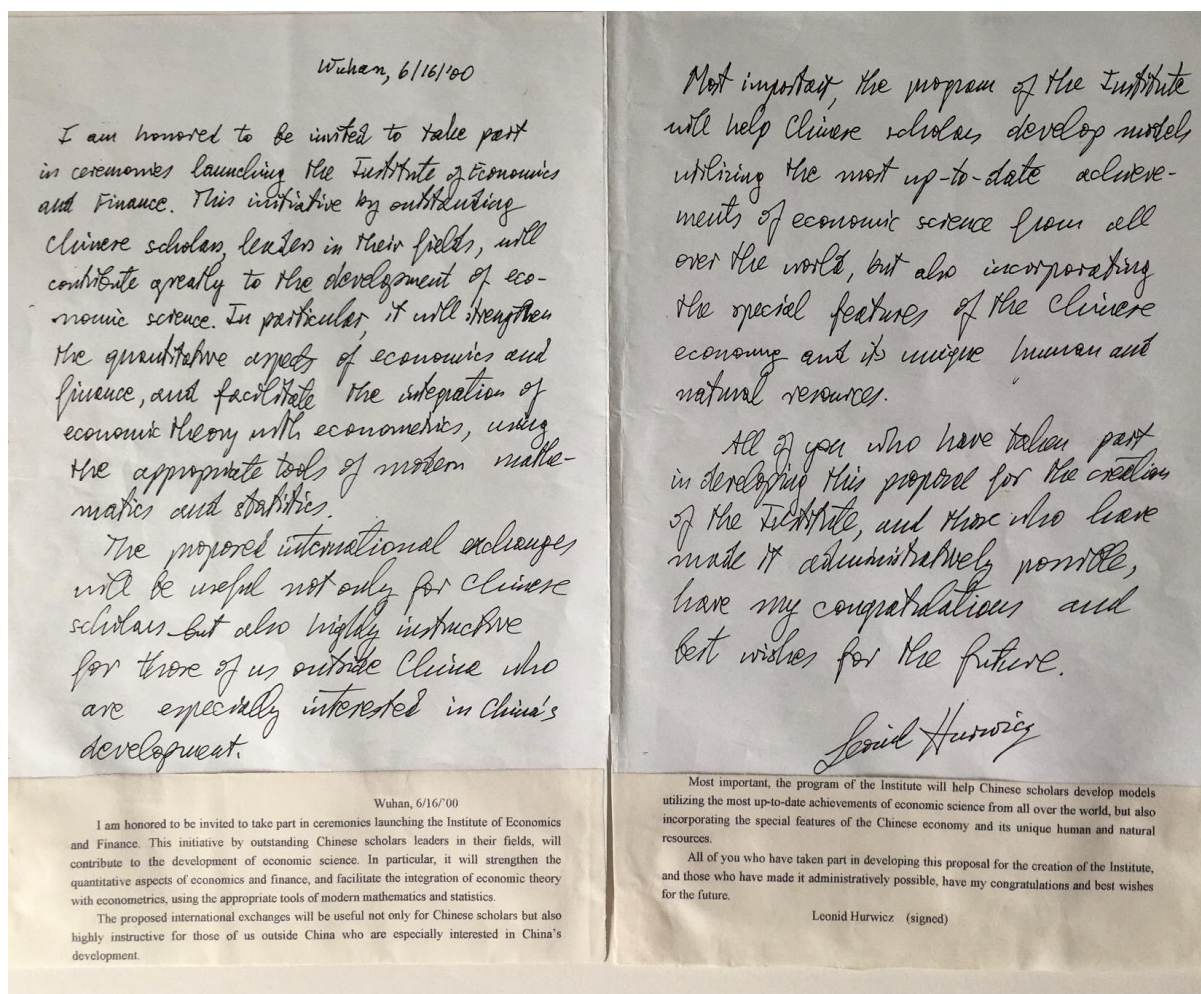 Wuhan, 6/16/'00
I am honored to be invited to take part
in ceremonies launching the Institute of Economics
and Finance. This initiative by outstanding
Chinese scholars, leaders in their fields, will
contribute greatly to the development of eco-
nomic science. In particular, it will strengthen
the quantitative aspects of economics and
finance, and facilitate the integration of
economic theory with econometrics, using
the appropriate tools of modern mathe-
matics and statistics.
The proposed international exchanges
will be useful not only for Chinese
scholars but also highly instructive
for those of us outside China who
are especially interested in China's
development.
Wuhan, 6/16/'00
I am honored to be invited to take part in ceremonies launching the Institute of Economics
and Finance. This initiative by outstanding Chinese scholars leaders in their fields, will
contribute to the development of economic science. In particular, it will strengthen the
quantitative aspects of economics and finance, and facilitate the integration of economic theory
with econometrics, using the appropriate tools of modern mathematics and statistics.
The proposed international exchanges will be useful not only for Chinese scholars but also
highly instructive for those of us outside China who are especially interested in China's
development.
Most important, the program of the Institute
will help Chinese scholars develop models
utilizing the most up-to-date achieve-
ments of economic science from all
over the world, but also incorporating
the special features of the Chinese
economy and its unique human and
natural resources.
All of you who have taken part
in developing this proposal for the creation
of the Institute, and those who have
made it administratively possible,
have my congratulations and
best wishes for the future.
Leonid Hurwicz
Most important, the program of the Institute will help Chinese scholars develop models
utilizing the most up-to-date achievements of economic science from all over the world, but also
incorporating the special features of the Chinese economy and its unique human and natural
resources.
All of you who have taken part in developing this proposal for the creation of the Institute,
and those who have made it administratively possible, have my congratulations and best wishes
for the future.
Leonid Hurwicz (signed)